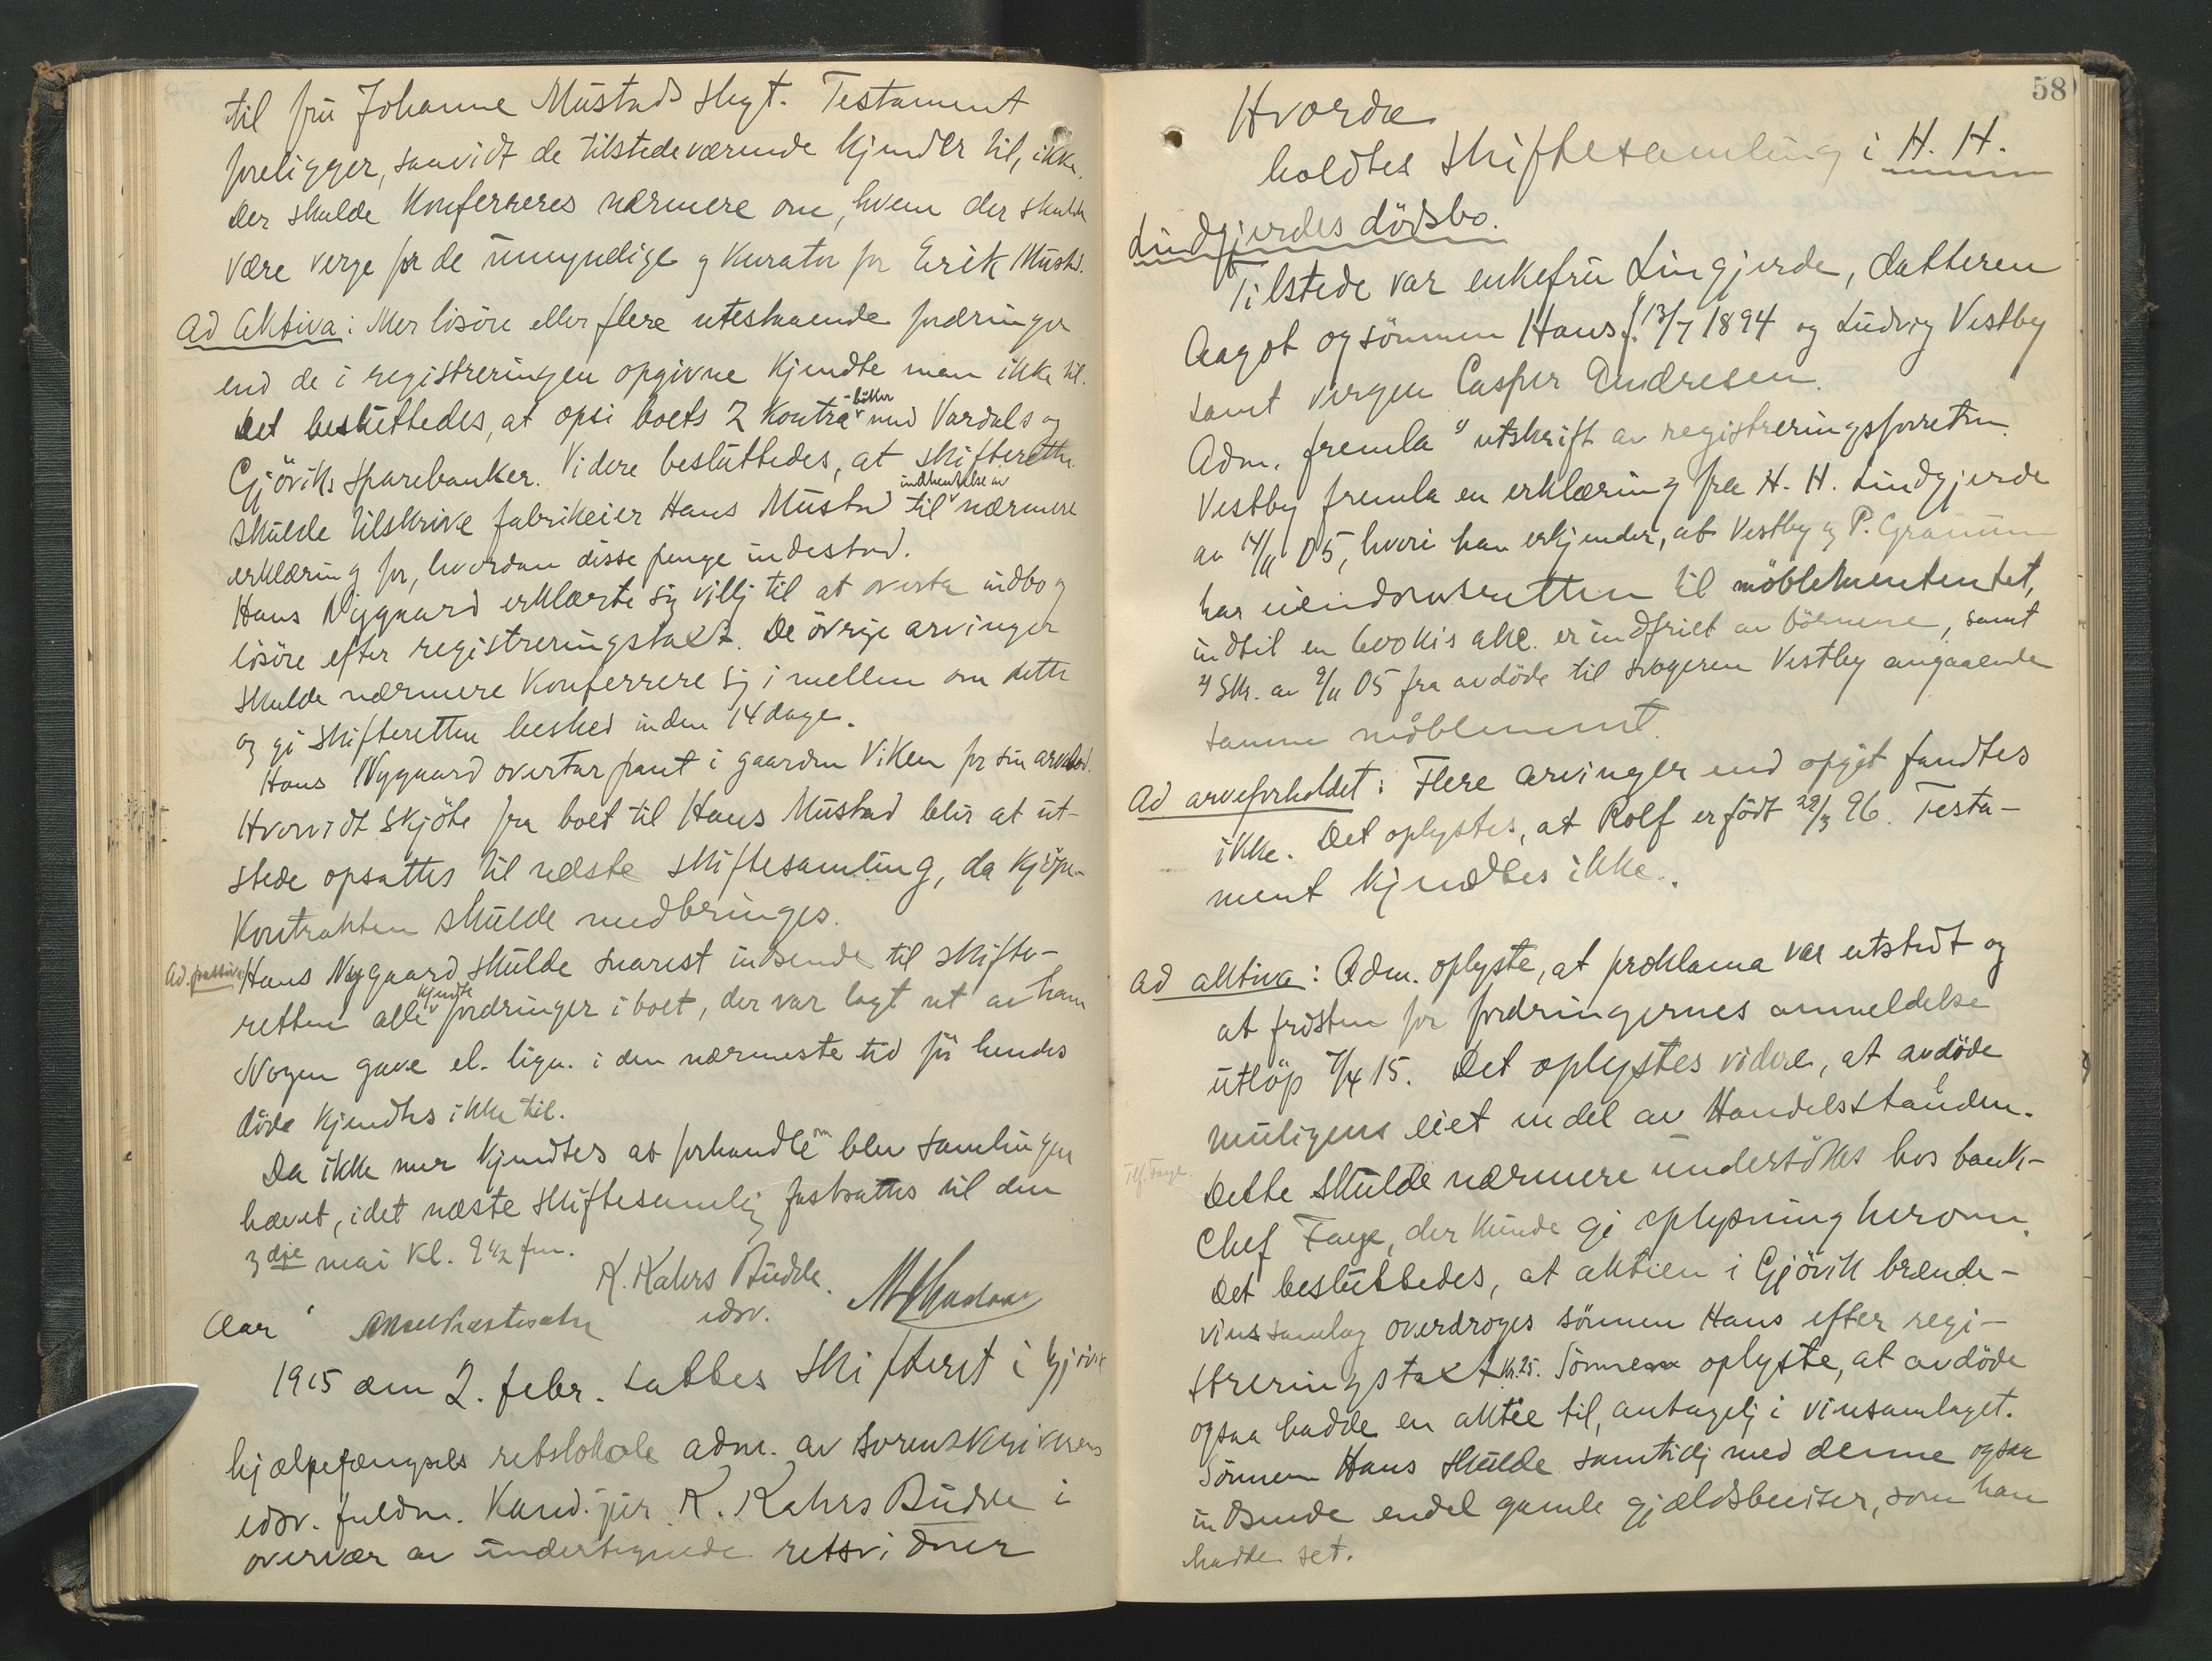 til fru Johanne Mustads skyt. Testament
foreligger, saavidt de tilstedeværende kjender til, ikke.
Der skulde konfereres nærmere om, hvem der skulde
være verge for de umyndige og kurator for Erik Mustad.
Ad Aktiva: Mer lösöre eller flere utestaaende fordringer
end de i registreringen opgivne kjendte man ikke til.
Det besluttedes, at opsi boets 2 kontra-bøker med Vardals og
Gjöviks Sparebanker. Videre besluttedes, at skifteretten
skulde tilskrive fabrikeier Hans Mustad til indhentelse av nærmere
erklæring for, hvordan disse penge indestod.
Hans Nygaard erklærte sig villig til at overta indbo og
lösöre efter registreringstaxt. De övrige arvinger
skulde nærmere konferrere sig i mellem om dette
og gi skifteretten besked inden 14 dage.
Hans Nygaard overtar pant i gaarden Viken for sin arvelod.
Hvorvidt skjöte fra boet til Hans Mustad blir at ut-
stede opsattes til næste skiftesamling, da kjöpe-
kontrakten skulde medbringes.
Ad passiva: Hans Nygaard skulde snarest indsende til skifte-
retten alle kjendte fordringer i boet, der var lagt ut av ham
Nogen gave el. lign. i den nærmeste tid för hendes
döde kjendtes ikke til.
Da ikke mer kjendtes at forhandle om blev samlingen
hævet, idet næste skiftesamling fastsattes til den
3dje mai kl. 9 1/2 fm.
K. Kahrs Budde.
edsv.
Aar
1915 den 2. febr. sattes skifteret i Gjövik
hjælpefængsels retslokale adm. av sorenskriverens
edsv. fuldm. kand. jur K. Kahrs Budde i
overvær av undertegnede retsvidner
58
Hvorda
holdtes skiftesamling i H. H.
Lindgjerdes dödsbo.
Tilstede var enkefru Lingjerde, datteren
Aagot og sönnen Hans f. 13/7 1894 og Ludvig Vestby
samt vergen Casper Andresen.
Adm. fremla 1) utskrift av registreringsforretn.
Vestby fremla en erklæring fra H. H. Lindgjerde
av 14/11 05, hvori han erkjender, at Vestby og P. Granum
har eiendomsretten til möblemententet,
indtil en 600 kis akc. er indfriet av börnene, samt
2) Skr. av 9/11 05 fra avdöde til svogeren Vestby angaaende
samme möblement.
Ad arveforholdet: Flere arvinger end opgit fandtes
ikke. Det oplystes, at Rolf er födt 29/3 96. Testa-
ment kjendtes ikke.
Ad aktiva: Adm. oplyste, at proklama var utstedt og
at fristen for fordringernes anmeldelse
utlöp 7/4 15. Det oplystes videre, at avdöde
muligens eiet en del av Handelsstanden.
Tlf. Faye.
Dette skulde nærmere undersökes hos bank-
chef Faye, der kunde gi oplysning herom.
Det besluttedes, at aktien i Gjövik brænde-
vinssamlag overdroges sönnen Hans efter regi-
streringstaxt kr. 25. Sönnen oplyste, at avdöde
ogsaa hadde en aktie til, antagelig i vinsamlaget.
Sönnen Hans skulde samtidig med denne ogsaa
indsende endel gamle gjældsbeviser, som han
hadde set.